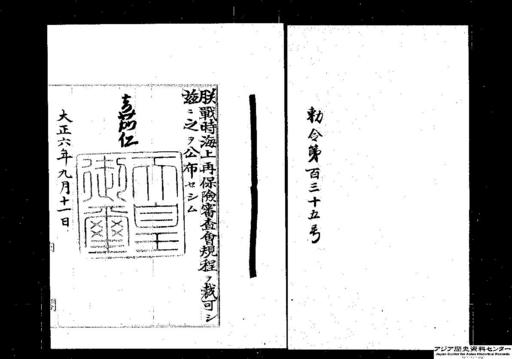 勅令第百三十五号
朕戰時海上再保險審査會規程ヲ裁可シ
茲ニ之ヲ公布セシム
嘉仁
天皇
御璽
大正六年九月十一日
内閣
アジア歴史資料センター
Japan Center for Asian Historical Records